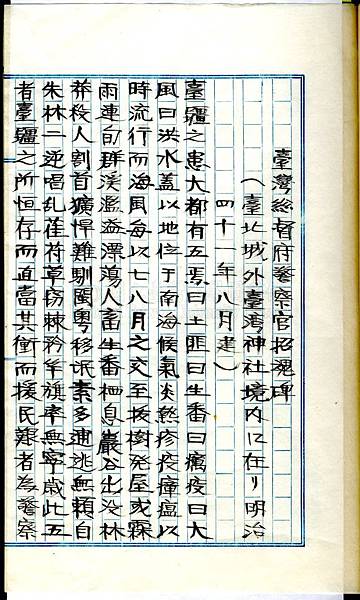 臺灣総督府警察官招魂碑
(臺北城外臺灣神社境内ニ在リ明治
四十一年八月建)
臺疆之患大都有五焉曰土匪曰生番曰癘疫曰大
風曰洪水蓋以地位于南海候氣炎熱疹疫瘴瘟以
時流行而海風每以七八月之交至拔樹発屋或霖
雨連旬群溪濫溢漂蕩人畜生番栖息巖谷出没林
莽殺人割首獷悍難馴閩粤移氓素多逋逃無頼自
朱林二逆唱乱萑苻草窃棘矜竿旗率無寧歳此五
者臺疆之所恒存而直當其衝而援民艱者為警察